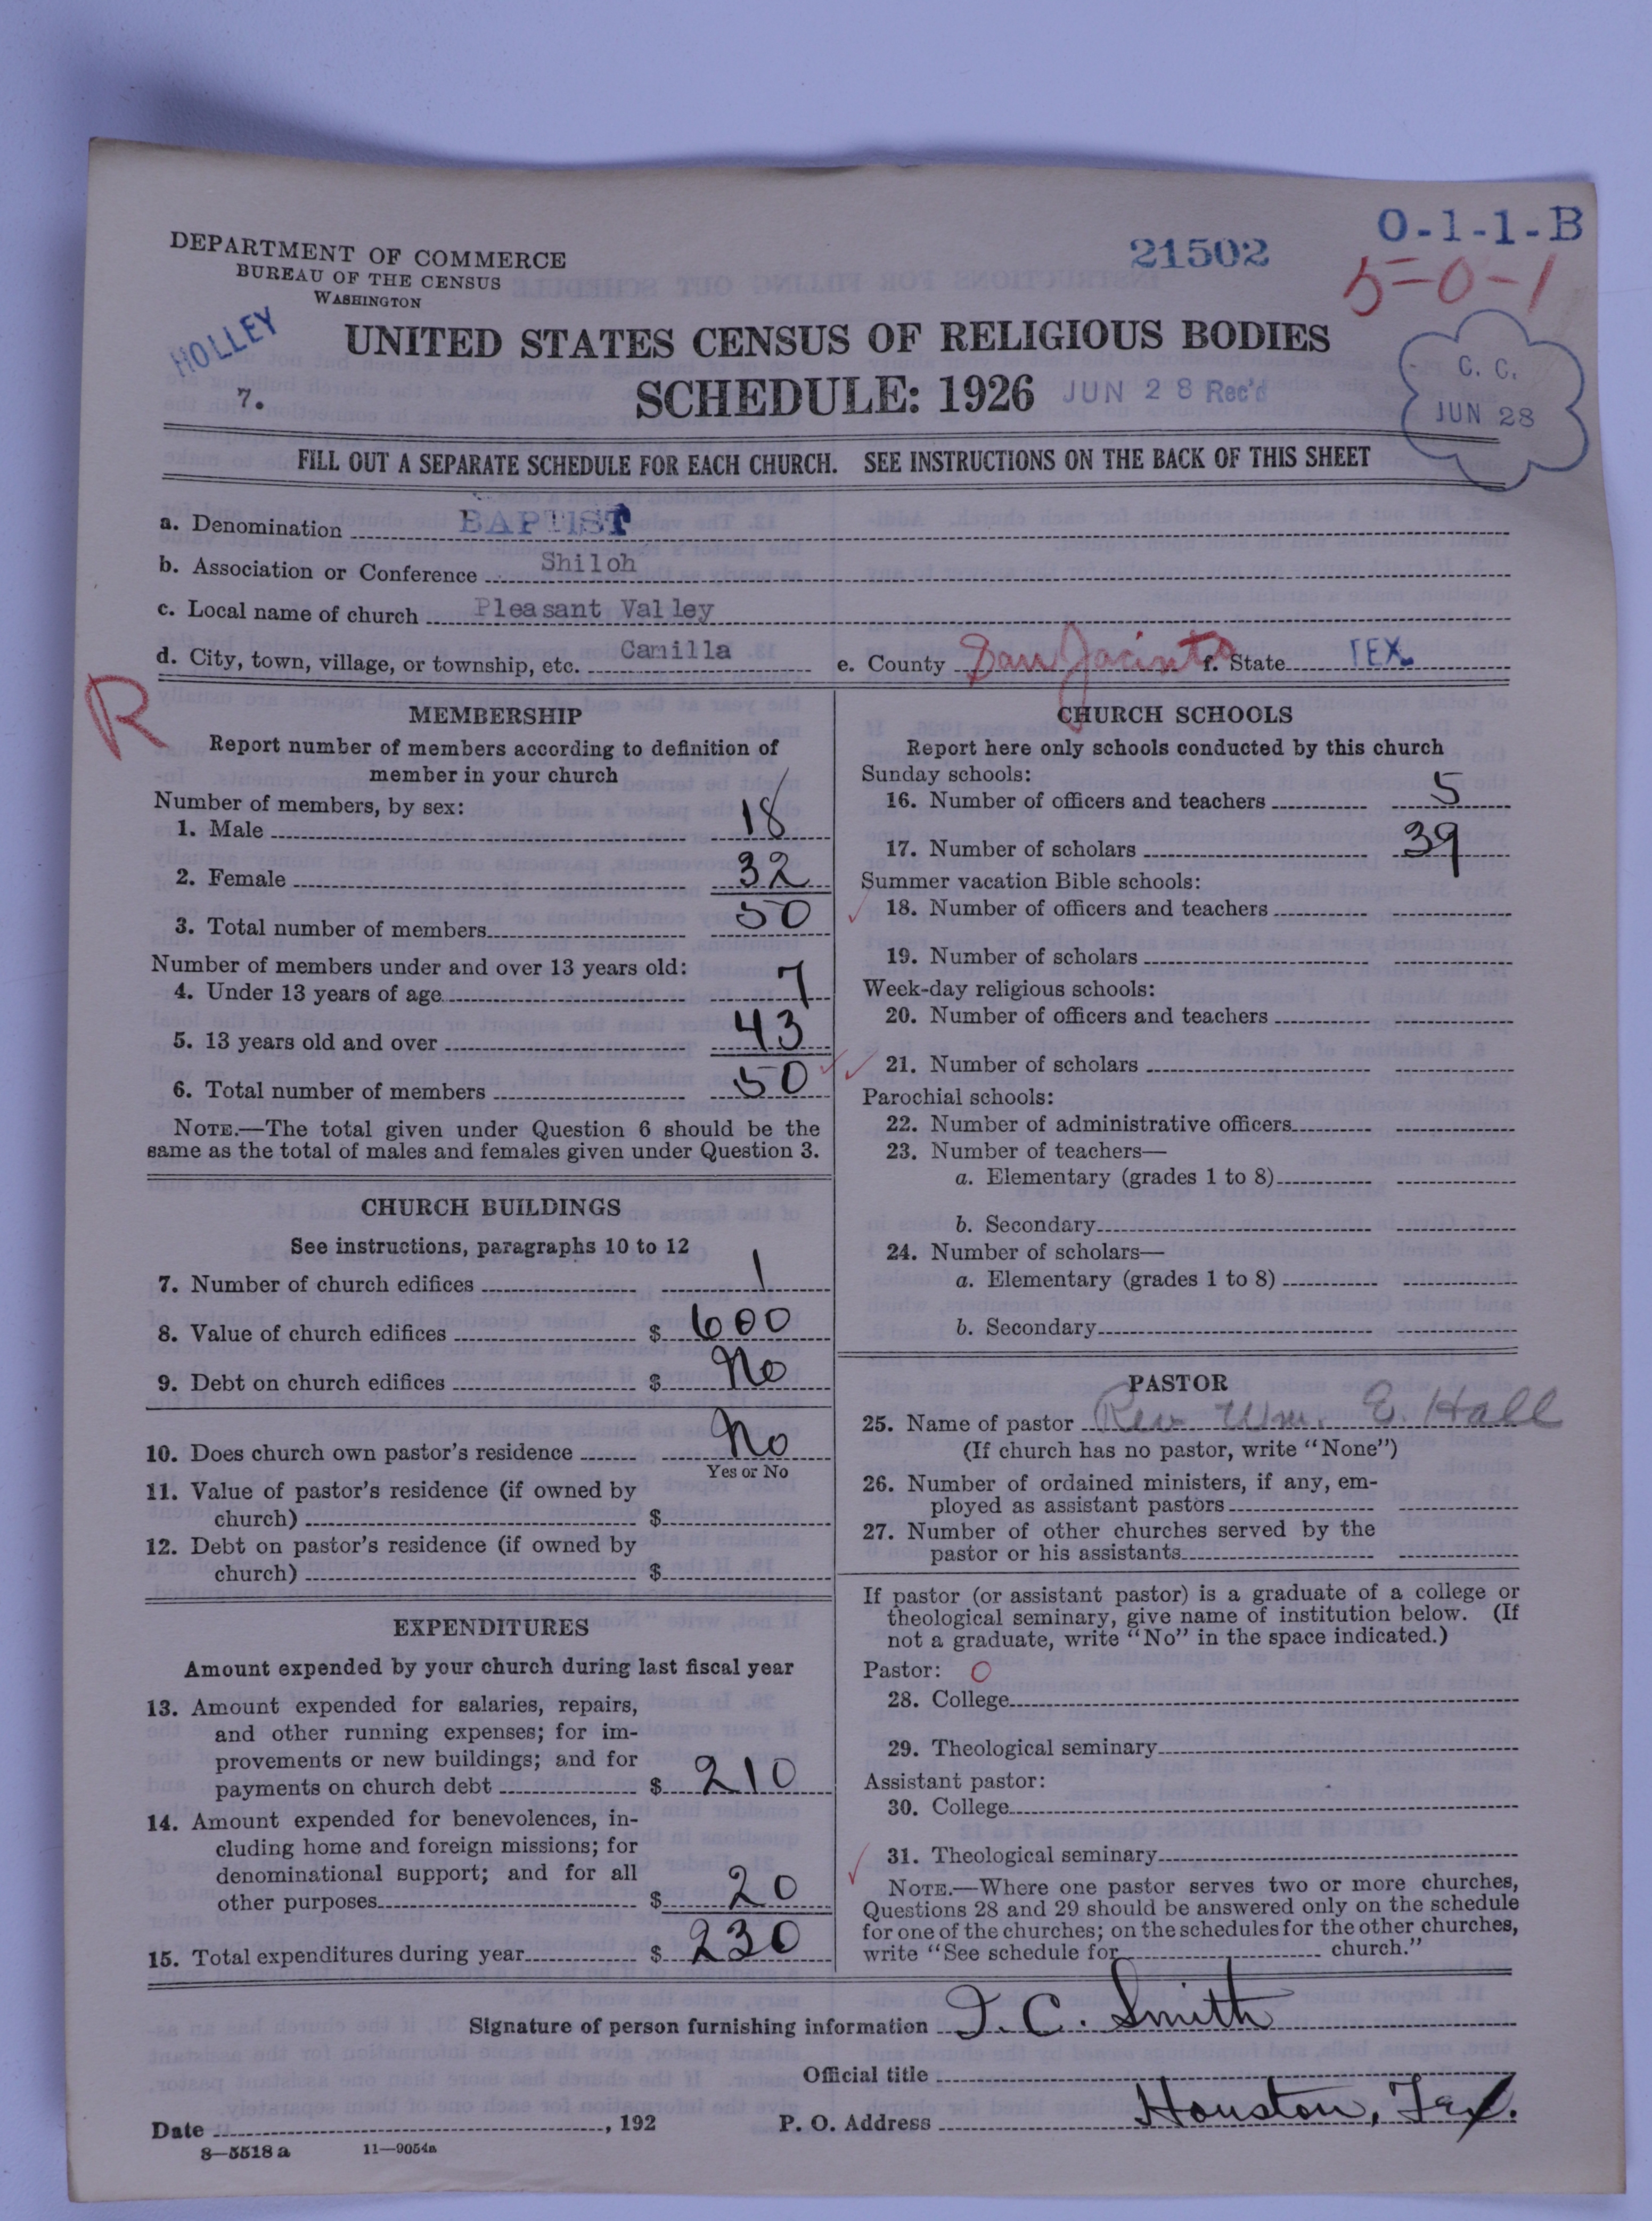 DEPARTMENT OF COMMERCE
BUREAU OF THE CENSUS
WASHINGTON
HOLLEY
7.
21502
O-1-1-B
5-0-1
UNITED STATES CENSUS OF RELIGIOUS BODIES
SCHEDULE: 1926 JUN 28 Rec'd
C. C.
JUN 28
FILL OUT A SEPARATE SCHEDULE FOR EACH CHURCH. SEE INSTRUCTIONS ON THE BACK OF THIS SHEET
a. Denomination BAPTIST
b. Association or Conference Shiloh
c. Local name of church Pleasant Valley
d. City, town, village, or township, etc. Camilla e. County San Jacinto f. State TEX.
R
MEMBERSHIP
Report number of members according to definition of
member in your church
Number of members, by sex:
1. Male 18
2. Female 32
3. Total number of members 50
Number of members under and over 13 years old:
4. Under 13 years of age 7
5. 13 years old and over 43
6. Total number of members 50
NOTE.—The total given under Question 6 should be the
same as the total of males and females given under Question 3.
CHURCH BUILDINGS
See instructions, paragraphs 10 to 12
7. Number of church edifices 1
8. Value of church edifices $ 600
9. Debt on church edifices $ No
10. Does church own pastor's residence No
Yes or No
11. Value of pastor's residence (if owned by
church) $
12. Debt on pastor's residence (if owned by
church) $
EXPENDITURES
Amount expended by your church during last fiscal year
13. Amount expended for salaries, repairs,
and other running expenses; for im-
provements or new buildings; and for
payments on church debt $ 210
14. Amount expended for benevolences, in-
cluding home and foreign missions; for
denominational support; and for all
other purposes $ 20
15. Total expenditures during year $ 230
CHURCH SCHOOLS
Report here only schools conducted by this church
Sunday schools:
16. Number of officers and teachers 5
17. Number of scholars 39
Summer vacation Bible schools:
18. Number of officers and teachers
19. Number of scholars
Week-day religious schools:
20. Number of officers and teachers
21. Number of scholars
Parochial schools:
22. Number of administrative officers
23. Number of teachers—
a. Elementary (grades 1 to 8)
b. Secondary
24. Number of scholars—
a. Elementary (grades 1 to 8)
b. Secondary
PASTOR
25. Name of pastor Rev. Wm. E. Hall
(If church has no pastor, write "None")
26. Number of ordained ministers, if any, em-
ployed as assistant pastors
27. Number of other churches served by the
pastor or his assistants
If pastor (or assistant pastor) is a graduate of a college or
theological seminary, give name of institution below. (If
not a graduate, write "No" in the space indicated.)
Pastor: O
28. College
29. Theological seminary
Assistant pastor:
30. College
31. Theological seminary
NOTE.—Where one pastor serves two or more churches,
Questions 28 and 29 should be answered only on the schedule
for one of the churches; on the schedules for the other churches,
write "See schedule for church."
Signature of person furnishing information I. C. Smith
Official title
Date , 192 P. O. Address Houston, Tex.
8—5518 a 11—9054a